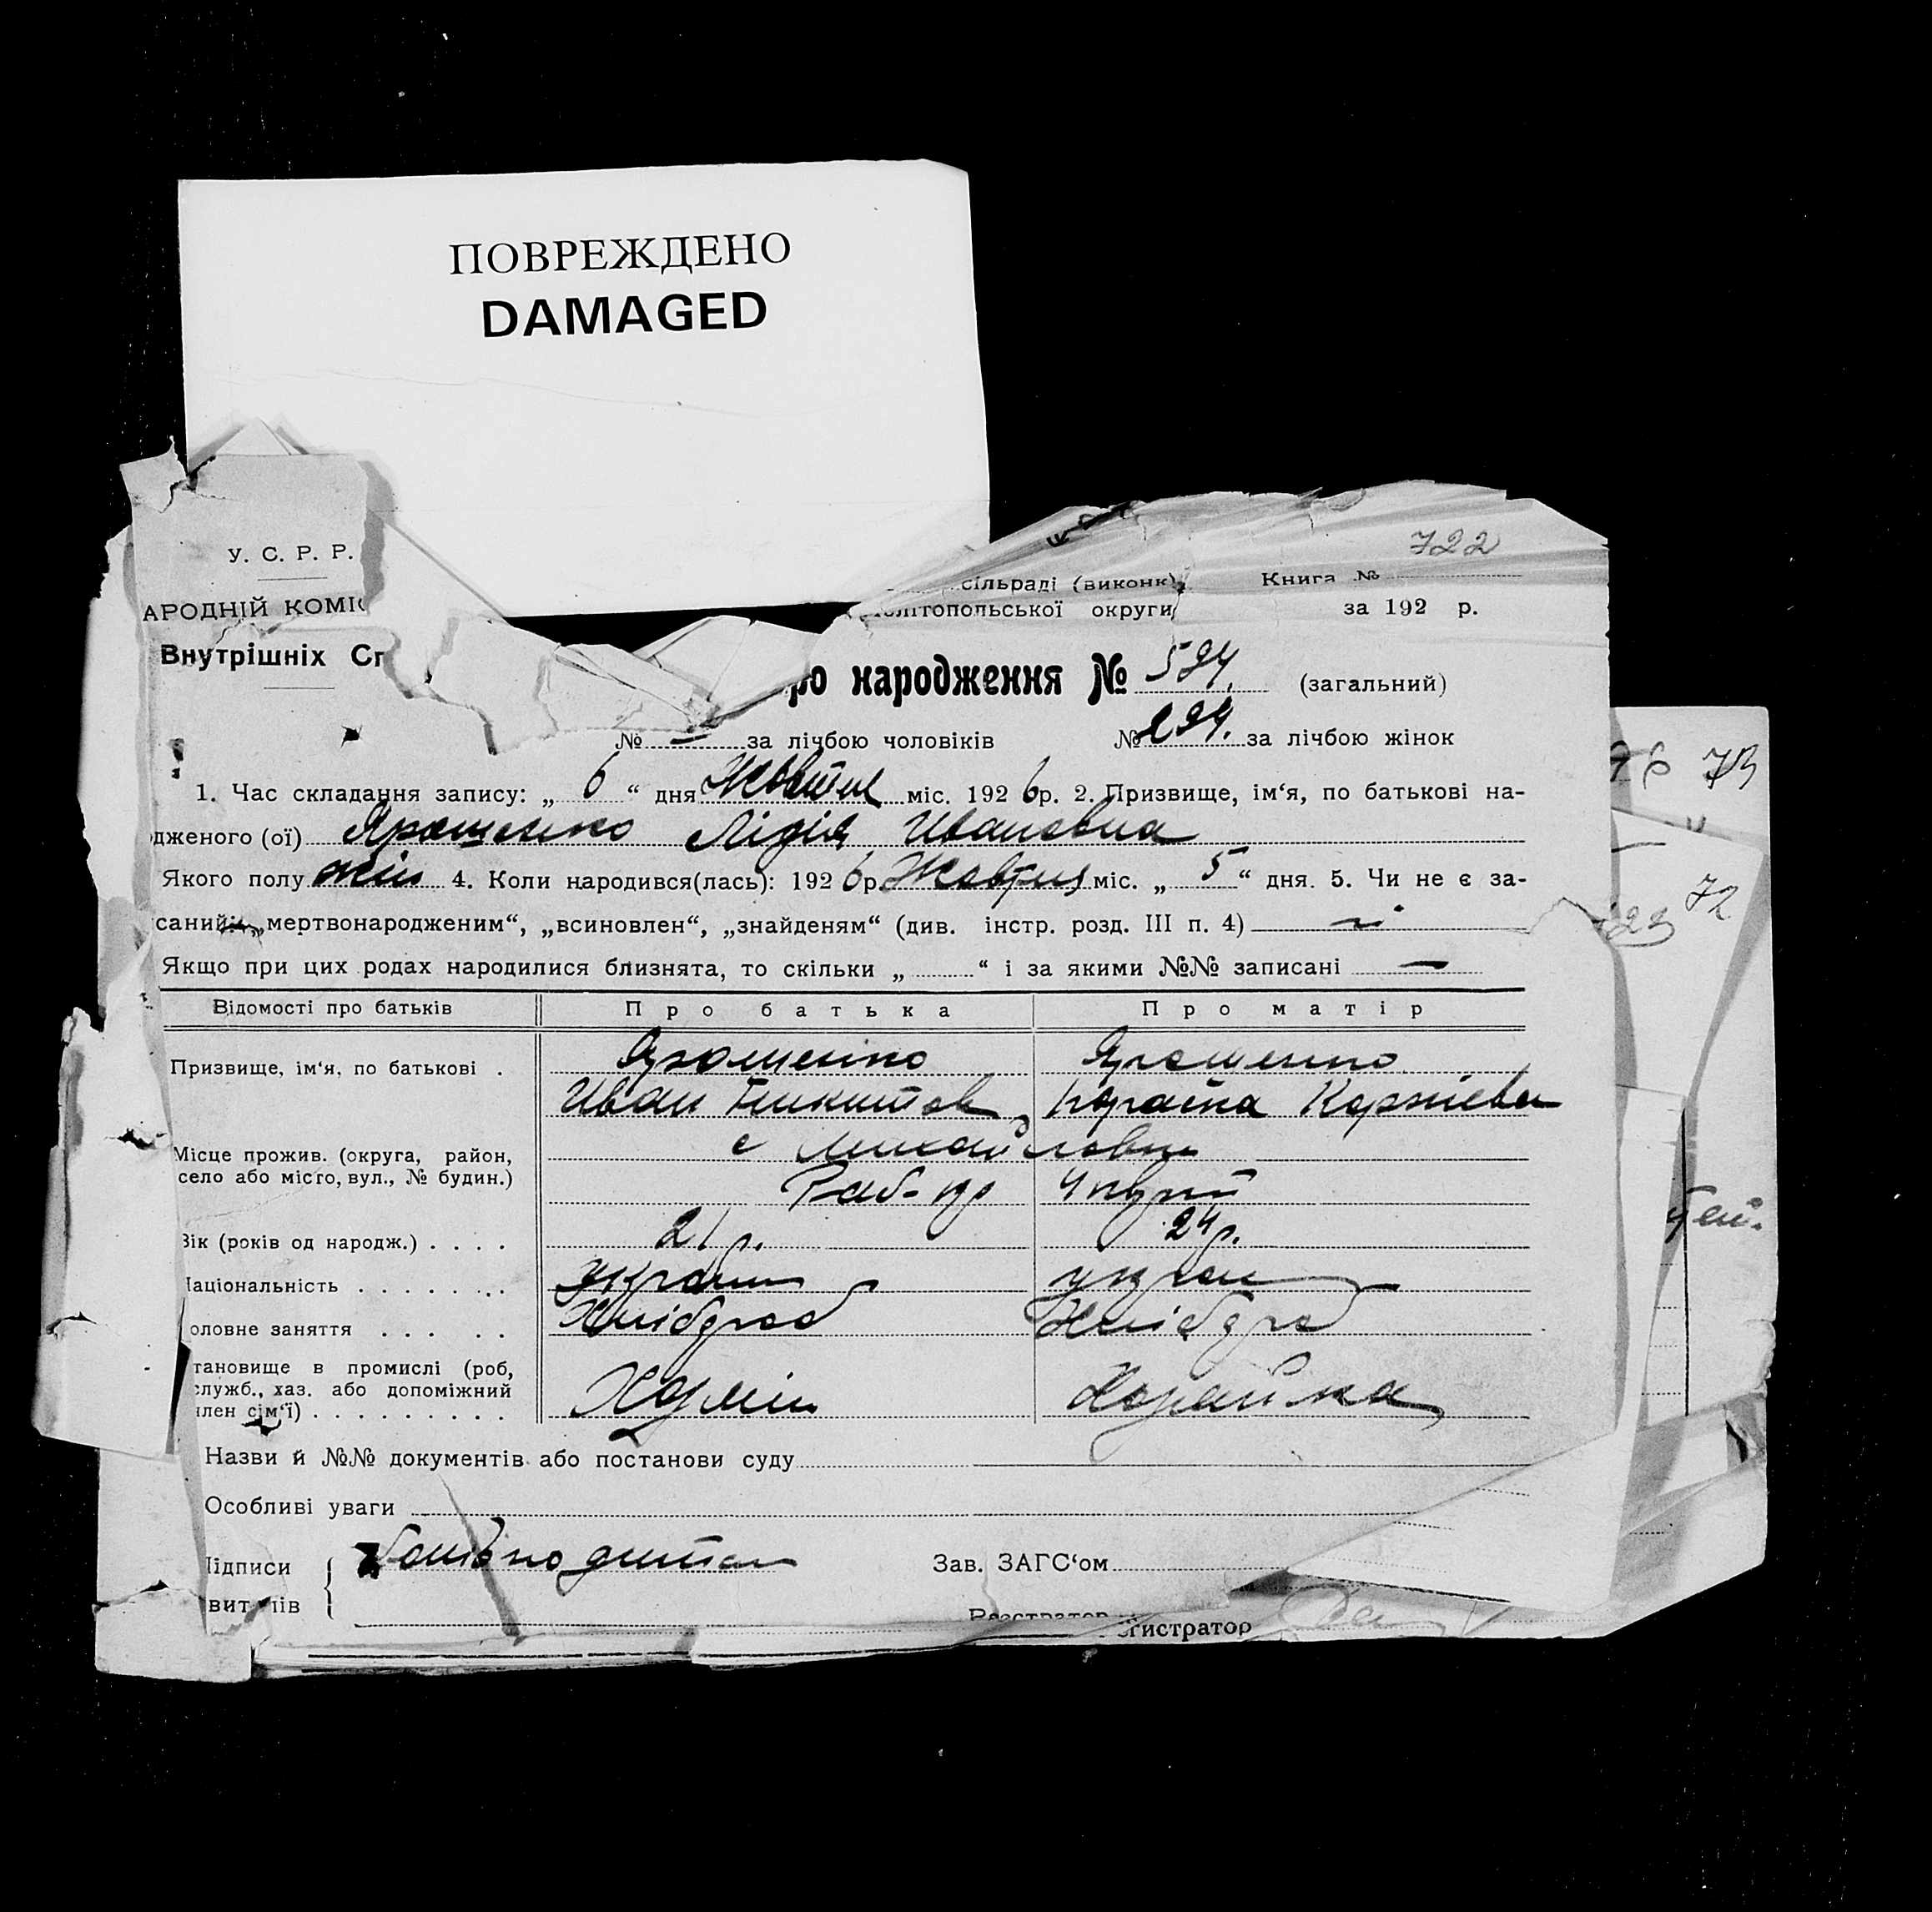 ПОВРЕЖДЕНО
DAMAGED
722
У. С. Р. Р.
сільраді (виконк)
Книга №
АРОДНІЙ КОМІС
літопольської округи
за 192 р.
Внутрішніх Сп
ро народження № 594. (загальний)
№ — за лічбою чоловіків № 294. за лічбою жінок
1. Час складання запису: „ 6 “ дня Жовтня міс. 192 6 р. 2. Призвище, ім‘я, по батькові на-
дженого (ої) Ярошенко Лідія Ивановна
Якого полу жін 4. Коли народився(лась): 192 6 р. Жовтня міс. „ 5 “ дня. 5. Чи не є за-
саний: „мертвонародженим“, „всиновлен“, „знайденям“ (див. інстр. розд. III п. 4)
Якщо при цих родах народилися близнята, то скільки „ “ і за якими №№ записані —
Відомості про батьків Про батька Про матір
Призвище, ім‘я, по батькові . Ярошенко Ярошенко
Иван Никитов
Місце прожив. (округа, район, с Михайловка
село або місто, вул., № будин.)
Вік (років од народж.) . . . . 21 р. 24 р.
Національність . . . . . . . украин украин
оловне заняття . . . . . Хліборob Хлібороб
тановище в промислі (роб,
служб., хаз. або допоміжний
член сім‘ї) . . . . . . . . .
Назви й №№ документів або постанови суду
Особливі уваги
Підписи
Зав. ЗАГС‘ом
Реєстратор
гистратор
73
72